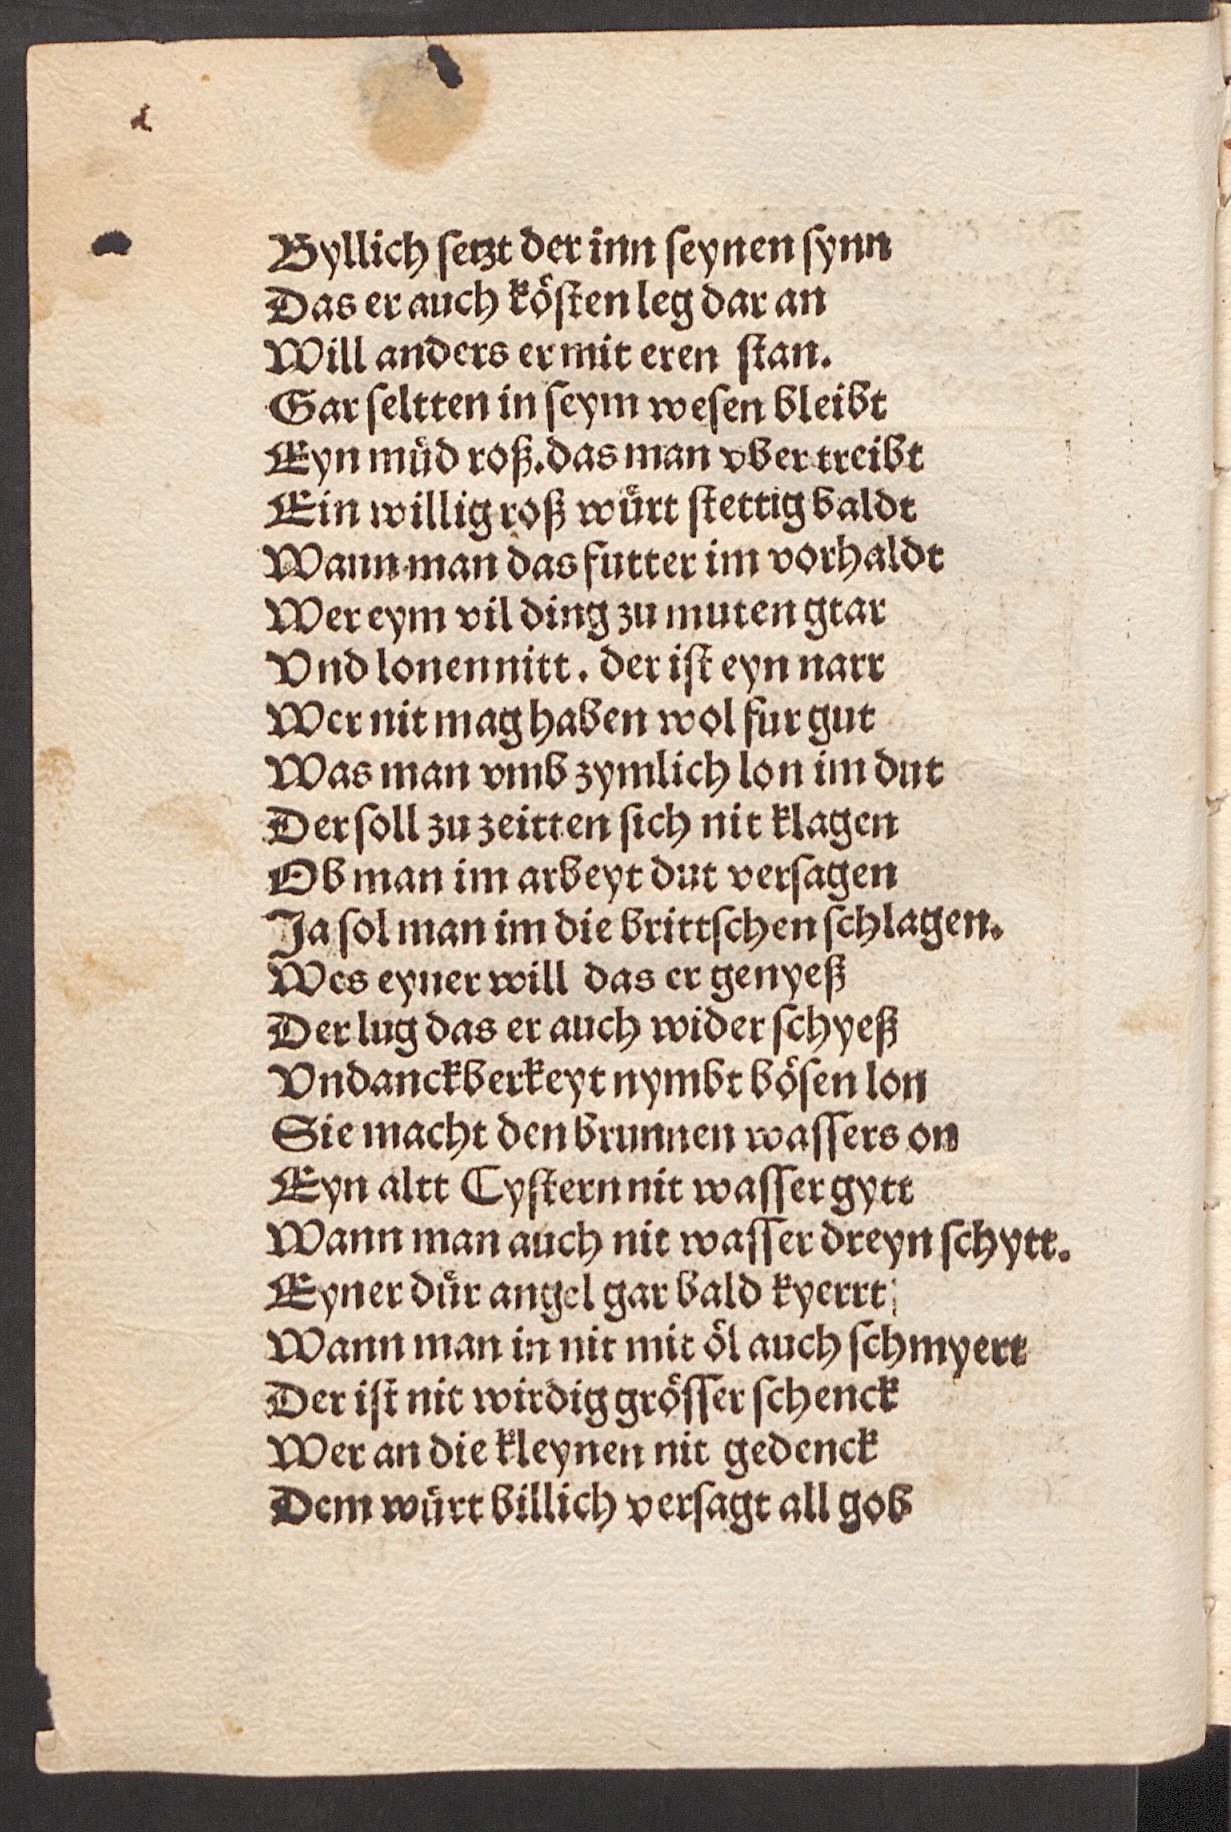 Byllich setzt der inn seynen synn
Das er auch kösten leg dar an
Will anders er mit eren stan.
Gar seltten in seym wesen bleibt
Eyn müd roß. das man vber treibt
Ein willig roß würt stettig baldt
Wann man das futter im vorhaldt
Wer eym vil ding zu muten gtar
Vnd lonen nitt. der ist eyn narr
Wer nit mag haben wol fur gut
Was man vmb zymlich lon im dut
Der soll zu zeitten sich nit klagen
Ob man im arbeyt dut versagen
Ja sol man im die brittschen schlagen.
Wes eyner will das er genyeß
Der lug das er auch wider schyeß
Vndanckberkeyt nymbt bösen lon
Sie macht den brunnen wassers on
Eyn altt Cystern nit wasser gytt
Wann man auch nit wasser dreyn schytt.
Eyner dür angel gar bald kyerrt
Wann man in nit mit öl auch schmyert
Der ist nit wirdig grösser schenck
Wer an die kleynen nit gedenck
Dem würt billich versagt all gob